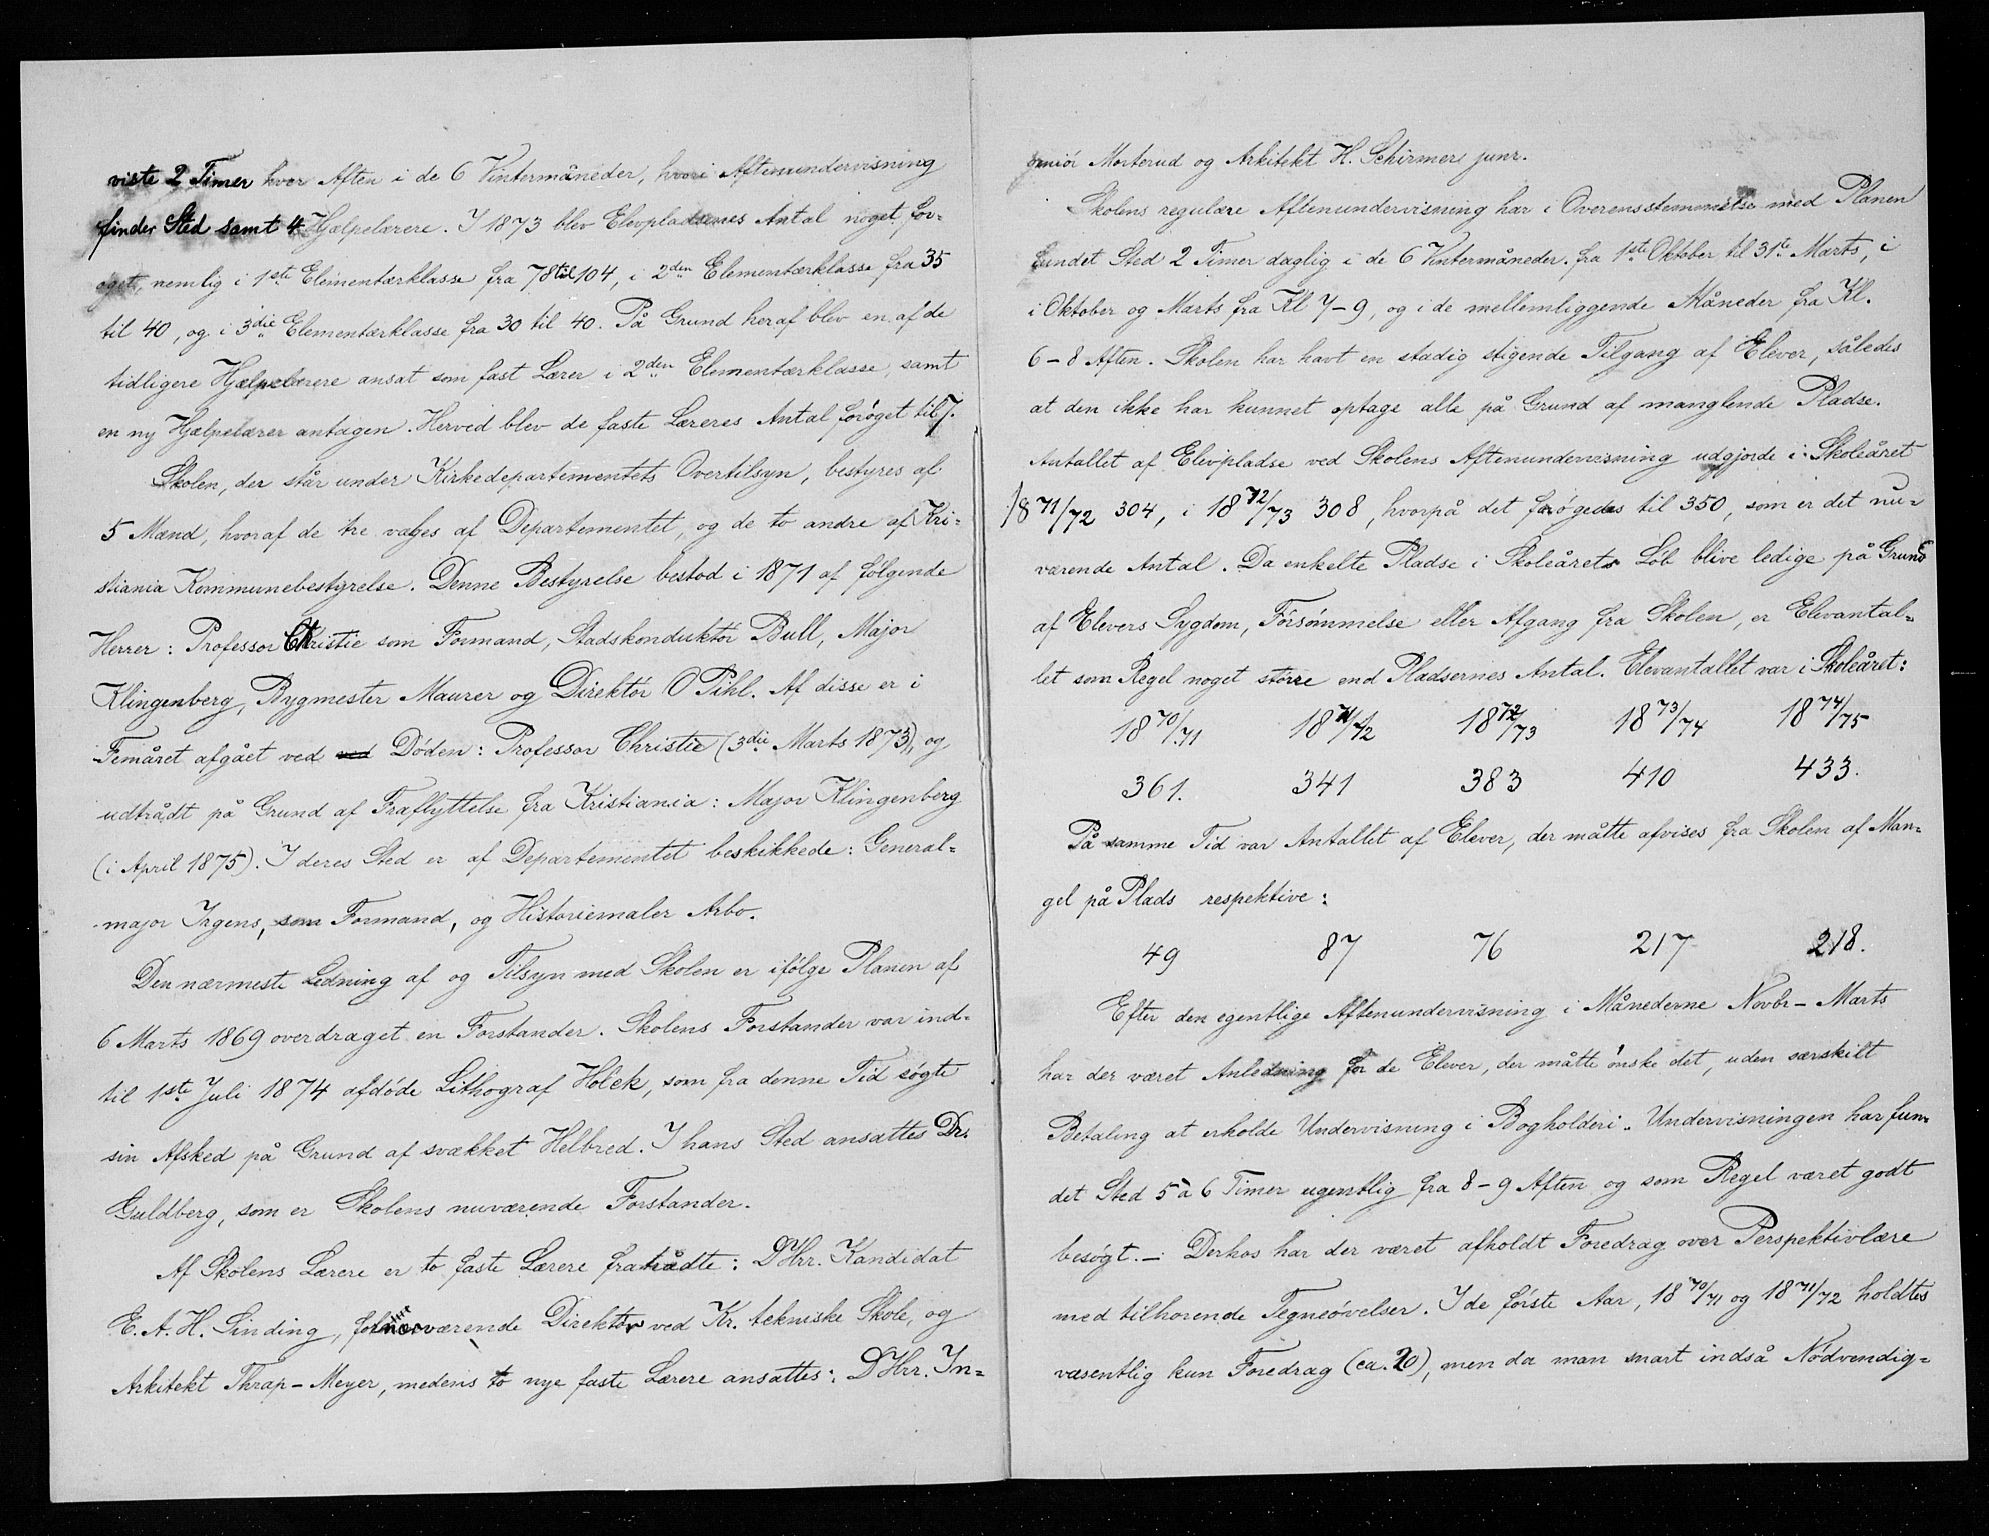 viste 2 Timer hver Aften i de 6 Vintermåneder, hvori Aftenundervisning
finder Sted samt 4 Hjælpelærere. I 1873 blev Elevpladsenes Antal noget for-
øget, nemlig i 1ste Elementærklasse fra 78 til 104, i 2den Elementærklasse fra 35
til 40, og i 3die Elementærklasse fra 30 til 40. På Grund heraf blev en af de
tidligere Hjælpelærere ansat som fast Lærer i 2den Elementærklasse, samt
en ny Hjælpelærer antagen. Herved blev de faste Læreres Antal forøget til 7.
Skolen, der står under Kirkedepartementets Overtilsyn, bestyres af
5 Mænd, hvoraf de tre vælges af Departementet, og de to andre af Kri-
stiania Kommunebestyrelse. Denne Bestyrelse bestod i 1871 af følgende
Herrer: Professor Christie som Formand, Stadskonduktør Bull, Major
Klingenberg, Bygmester Maurer og Direktør O Pihl. Af disse er i
Femåret afgået ved ved Døden: Professor Christie (3die Marts 1873), og
udtrådt på Grund af Fraflyttelse fra Kristiania: Major Klingenberg
(i April 1875). I deres Sted er af Departementet beskikkede: General-
major Irgens, som Formand, og Historiemaler Arbo.
Den nærmeste Ledning af og Tilsyn med Skolen er ifølge Planen af
6 Marts 1869 overdraget en Forstander. Skolens Forstander var ind-
til 1ste Juli 1874 afdøde Lithograf Holck, som fra denne Tid søgte
sin Afsked på Grund af svækket Helbred. I hans Sted ansattes Dr.
Guldberg, som er Skolens nuværende Forstander.
Af Skolens Lærere er to faste Lærere fratrådte: DHrr. Kandidat
E. A. H. Sinding, nuværende Direktør ved Kr. tekniske Skole, og
Arkitekt Thrap-Meyer, medens to nye faste Lærere ansattes: DHrr. In-
geniør Morterud og Arkitekt H. Schirmer junr.
Skolens regulære Aftenundervisning har i Overensstemmelse med Planen
fundet Sted 2 Timer daglig i de 6 Vintermåneder fra 1ste Oktober til 31te Marts, i
i Oktober og Marts fra Kl 7-9, og i de mellemliggende Måneder fra Kl.
6-8 Aften. Skolen har havt en stadig stigende Tilgang af Elever, således
at den ikke har kunnet optage alle på Grund af manglende Pladse.
Antallet af Elevpladse ved Skolens Aftenundervisning udgjorde i Skoleåret
1871/72 304, i 1872/73 308, hvorpå det forøgedes til 350, som er det nu-
værende Antal. Da enkelte Pladse i Skoleårets Løb blive ledige på Grund
af Elevers Sygdom, Forsømmelse eller Afgang fra Skolen, er Elevantal-
let som Regel noget større end Pladsernes Antal. Elevantallet var i Skoleåret:
1870/71 1871/72 1872/73 1873/74 1874/75
361. 341 383 410 433.
På samme Tid var Antallet af Elever, der måtte afvises fra Skolen af Man-
gel på Plads respektive:
49 87 76 217 218.
Efter den egentlige Aftenundervisning i Månederne Novbr-Marts
har der været Anledning for de Elever, der måtte ønske det, uden særskilt
Betaling at erholde Undervisning i Bogholderi. Undervisningen har fun-
det Sted 5 à 6 Timer ugentlig fra 8-9 Aften og som Regel været godt
besøgt. - Derhos har der været afholdt Foredrag over Perspektivlære
med tilhørende Tegneøvelser. I de første Aar, 1870/71 og 1871/72 holdtes
væsentlig kun Foredrag (ca. 20), men da man snart indså Nødvendig-